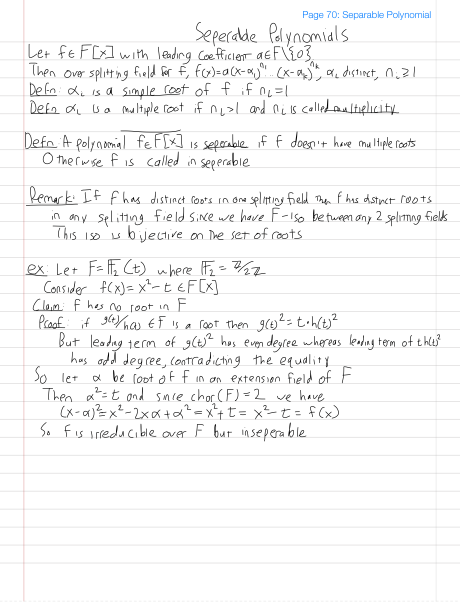 Page 70: Separable Polynomial
Seperable Polynomials
Let f∈F[x] with leading coefficient a∈F\{0}
Then over splitting field for f, f(x)=a(x-α₁)^n₁ ... (x-αₖ)^nₖ, αᵢ distinct, nᵢ≥1
Defn: αᵢ is a simple root of f if nᵢ=1
Defn αᵢ is a multiple root if nᵢ>1 and nᵢ is called multiplicity
Defn A polynomial f∈F[x] is seperable if f doesn't have multiple roots
Otherwise f is called inseperable
Remark: If f has distinct roots in one splitting field then f has distinct roots
in any splitting field since we have F-iso between any 2 splitting fields
This iso is bijective on the set of roots
ex: Let F=𝔽₂(t) where 𝔽₂=ℤ/2ℤ
Consider f(x)=x²-t∈F[x]
Claim: f has no root in F
Proof: if g(t)/h(t) ∈F is a root then g(t)²=t·h(t)²
But leading term of g(t)² has even degree whereas leading term of th(t)²
has odd degree, contradicting the equality
So let α be root of f in an extension field of F
Then α²=t and since char(F)=2 we have
(x-α)²=x²-2xα+α²=x²+t=x²-t=f(x)
So f is irreducible over F but inseperable